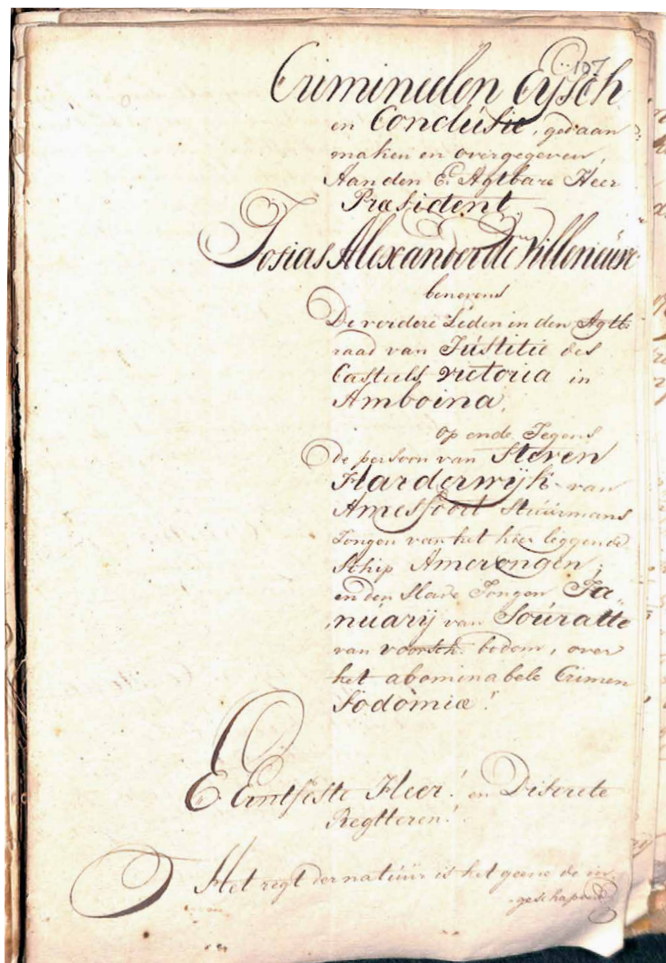 107
Crimineelen Eijsch
en Conclusie, gedaan
maken en overgegeven,
Aan den E. Agtbare Heer
Præsident
Josias Alexander de Villeneüve
benevens
De verdere Leden in den Agtb:
raad van Jüstitie des
Casteels Victoria in
Amboina,
op ende Jegens
De persoon van Steven
Harderwijk van
Amesfoort Stüürmans
Jongen van het hier leggende
Schip Amerongen,
en den Slave Jongen Ja„
„nüarij van Soüratte
van voorsch: bodem, over
het abominabele Crimen
Sodomiæ!
E. Erntfeste Heer! en Discrete
Regtteren!
Het regt der natüür is het geene de in„
„geschapene